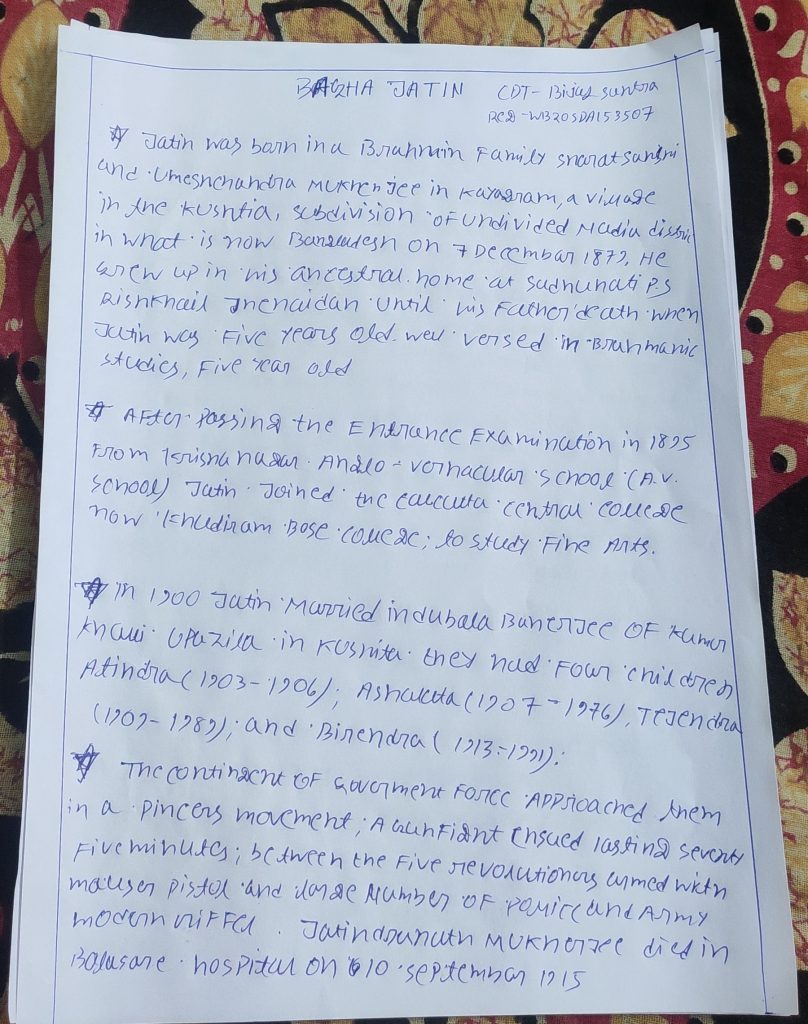 BAGHA JATIN CDT- Bijay Suntra
RCD - WB20SDA153507
Jatin was born in a Brahmin Family sharatsashi
and Umeshchandra Mukherjee in Kayagram, a village
in the Kushtia, subdivision of undivided Nadia distric
in what is now Bangladesh on 7 December 1879, He
grew up in his ancestral home at sadhuhati P.S
Rishkhali Jhenaidah until his Father death when
Jatin was Five years old. well versed in Brahmanic
studies, Five year old
After Passing the Entrance Examination in 1895
From Krishnanagar Anglo - vernacular school (A.V.
School) Jatin Joined the calcutta central college
now Khudiram Bose college; to study Fine Arts.
In 1900 Jatin Married indubala Banerjee OF Kumar
Khali Upazila in Kushita. they had Four children
Atindra (1903-1906); Ashalata (1907-1976), Tejendra
(1909-1989); and Birendra (1913=1991);
The contingent OF Goverment Force Approached them
in a pincers movement; A Gunfight ensued lasting seventy
Five minutes; between the Five revolutionary armed with
mauser pistol and large Number OF Police and Army
modern riffel. Jatindranath Mukherjee died in
Balasare hospital on 10 september 1915